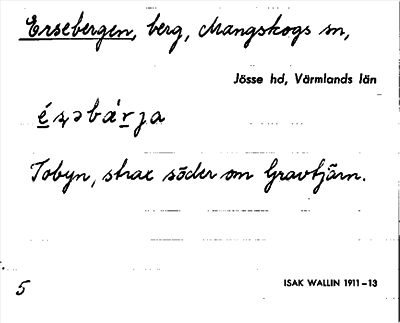 Ersebergen, berg, Mangskogs sn,
Jösse hd, Värmlands län
Tobyn, strax söder om Gravtjärn.
5
ISAK WALLIN 1911–13